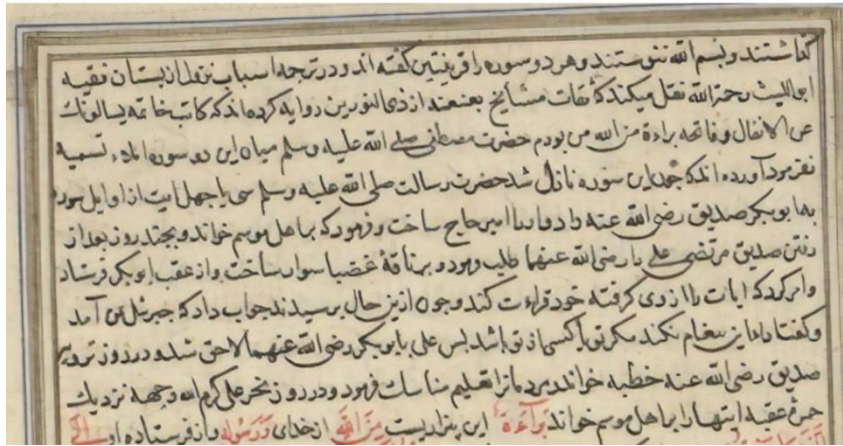 گذاشتند و بسم الله ننوشتند و هر دو سوره را قرینتین گفته اند و در ترجمه اسباب نزول از بستان فقیه
ابو اللیث رحمة الله نقل میکند که ثقات مشایخ بعنعنه از ذی النورین روایه کرده اند که کاتب خاتمه یسالونك
عن الانفال و فاتحه براءة من الله من بودم حضرت مصطفی صلی الله علیه وسلم میان این دو سوره املاء تسمیه
نفرمود آورده اند که چون این سوره نازل شد حضرت رسالت صلی الله علیه وسلم سی یا چهل ایت از اوایل سوره
به ابو بکر صدیق رضی الله عنه داد و او را امیر حاج ساخت و فرمود که بر اهل موسم خواند و بچند روز بعد از
رفتن صدیق مرتضی علی را رضی الله عنهما طلب فرمود و بر ناقۀ غضبا سوار ساخت و از عقب ابو بکر فرستاد
و امر کرد که ایات را از وی گرفته خود قراءت کند و چون ازین حال پرسیدند جواب داد که جبرئیل من آمد
و گفتا ادا این پیغام نکند مگر تو یا کسی از تو باشد پس علی با ابو بکر رضی الله عنهما لاحق شد و در روز ترویه
صدیق رضی الله عنه خطبه خواند مردمانرا تعلیم مناسك فرمود و در روز نحر علی کرم الله وجهه نزدیك
جمرۀ عقبه ایتها را بر اهل موسم خواند براءة این بیزاریست من الله از خدای و رسوله و از فرستاده او الی